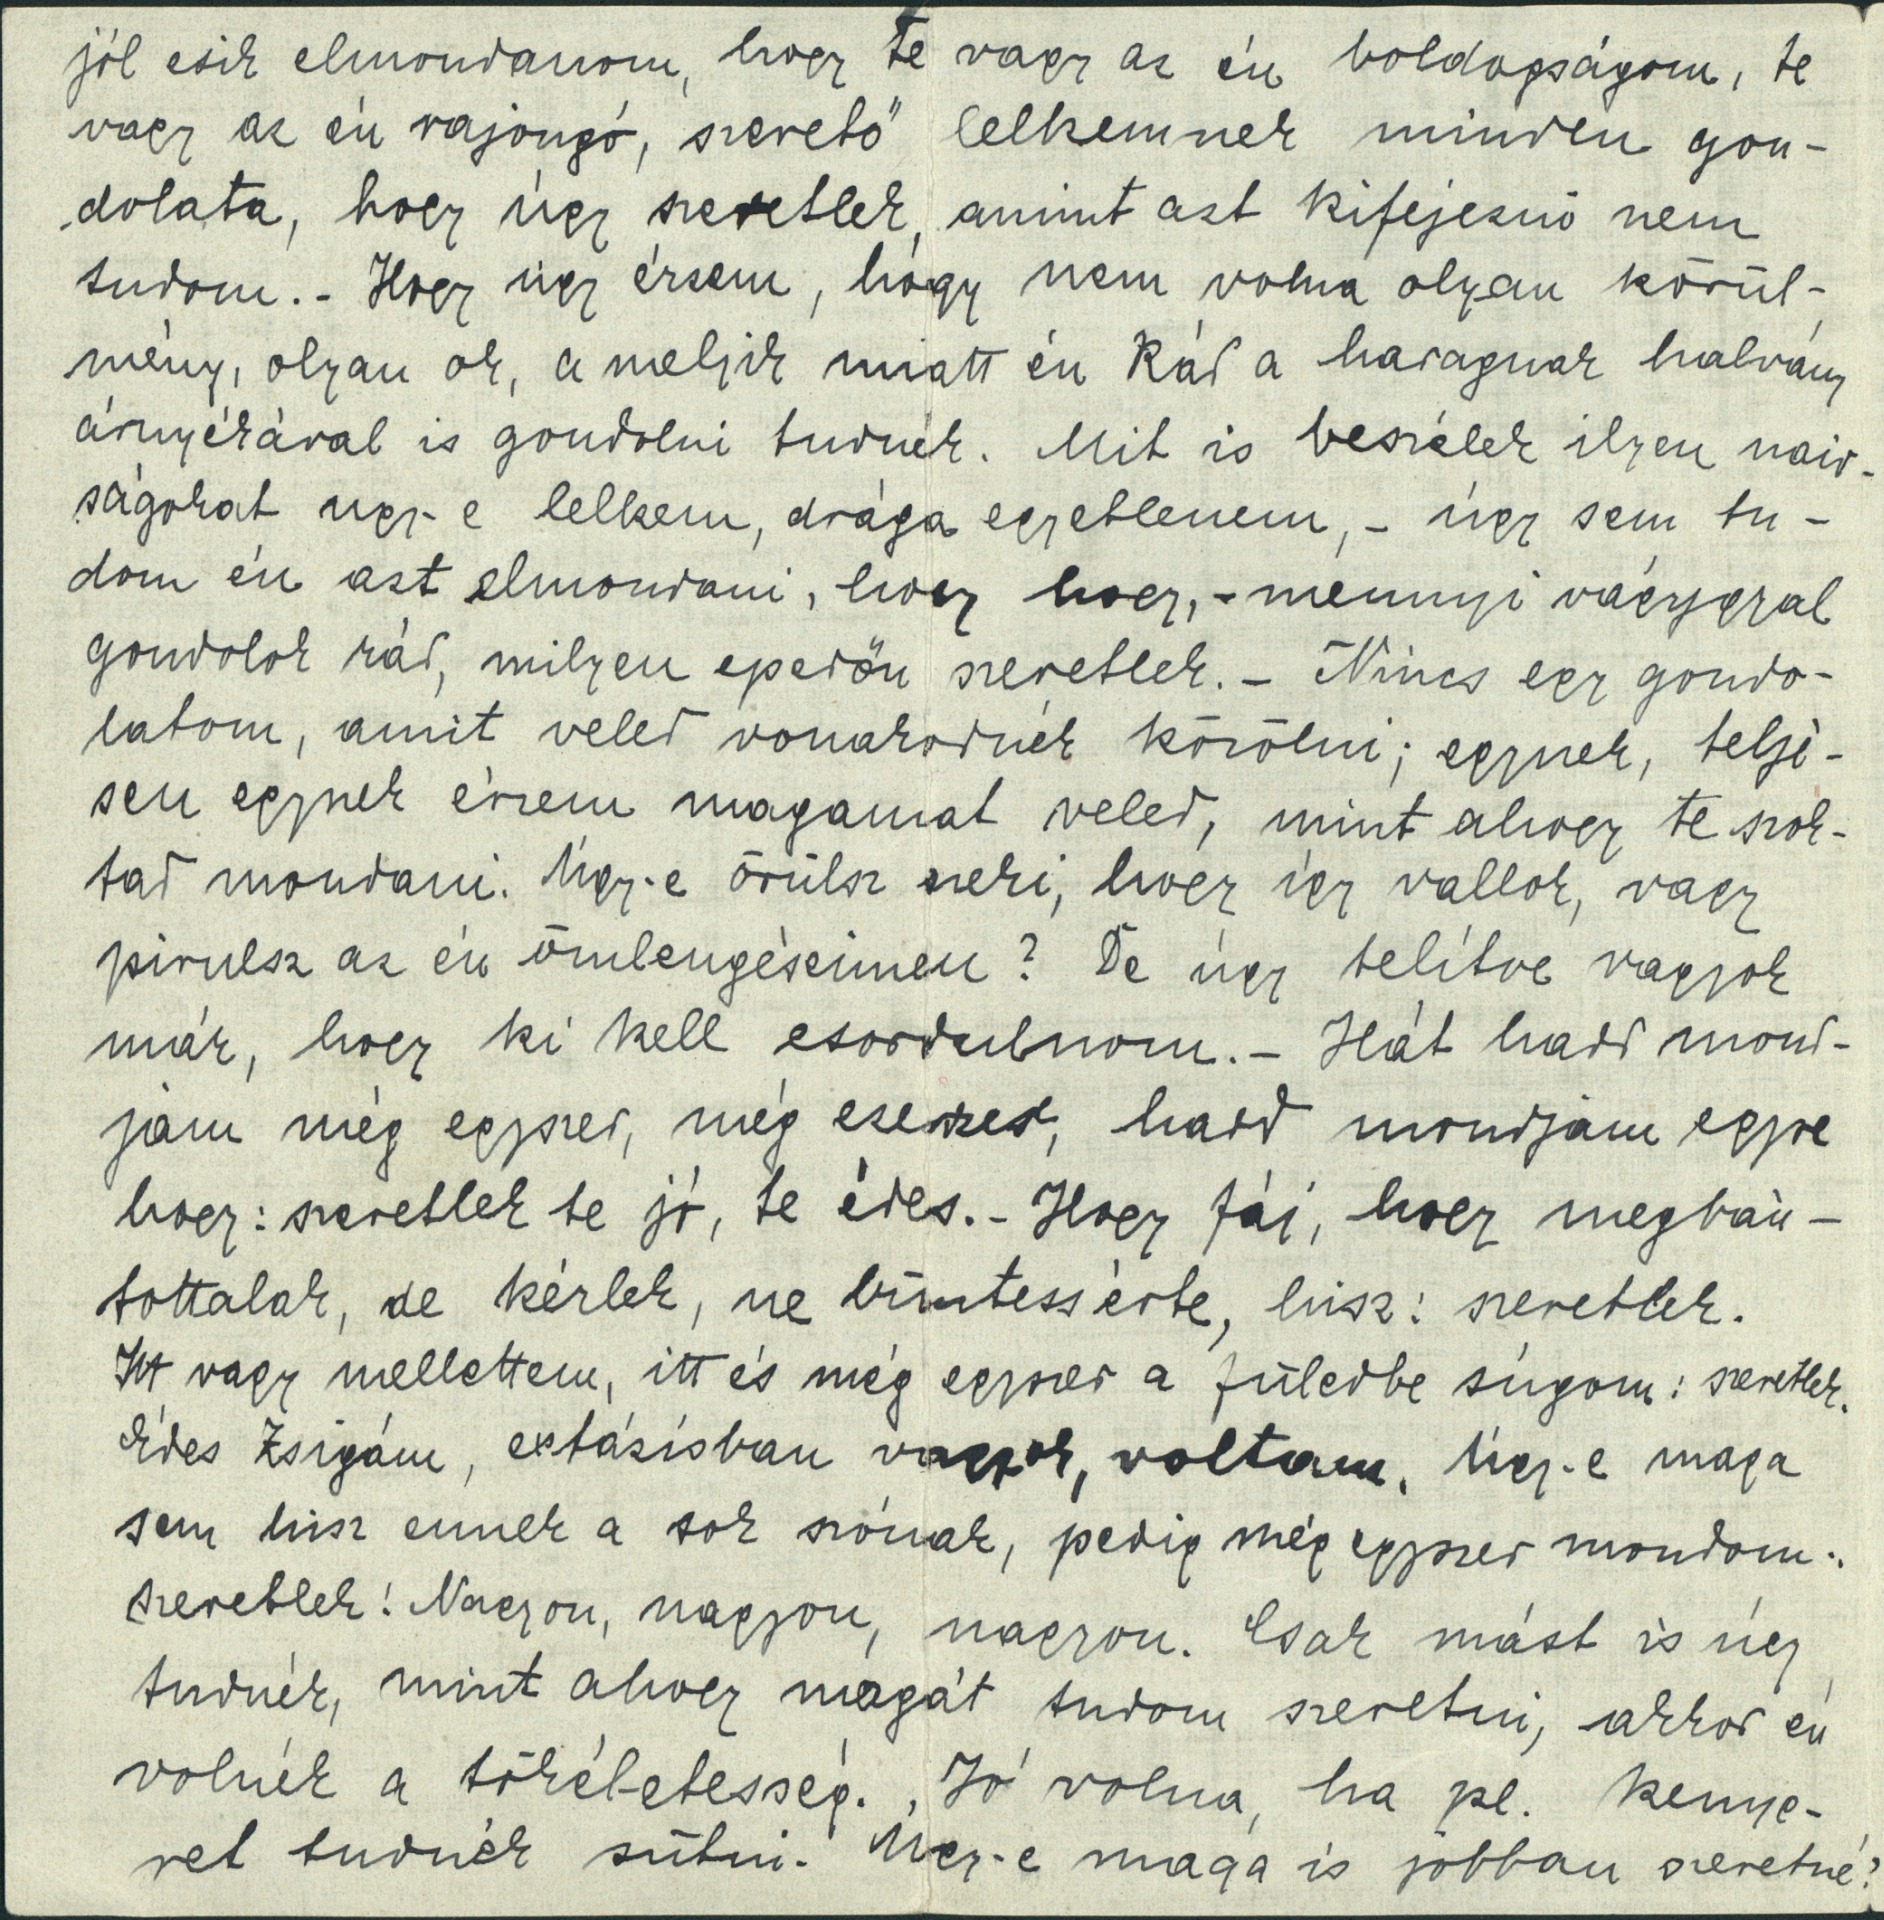 jól esik elmondanom, hogy te vagy az én boldogságom, te
vagy az én rajongó, szerető lelkemnek minden gon-
dolata, hogy úgy szeretlek, amint azt kifejezni nem
tudom.- Hogy úgy érzem, hógy nem volna olyan körül-
mény, olyan ok, a melyik miatt én Rád a haragnak halvány
árnyékával is gondolni tudnék. Mit is beszélek ilyen naiv-
ságokat ugy-e lelkem, drága egyetlenem,- úgy sem tu-
dom én azt elmondani, hogy hogy,- mennyi vággyal
gondolok rád, milyen epedőn szeretlek.- Nincs egy gondo-
latom, amit veled vonakodnék közölni; egynek, telje-
sen egynek érzem magamat veled, mint ahogy te szok-
tad mondani. Úgy-e örülsz neki, hogy így vallok, vagy
pirulsz az én ömlengéseimen? De úgy telítve vagyok
már, hogy ki kell csordulnom.- Hát hadd mond-
jam még egyszer, még ezerszer, hadd mondjam egyre
hogy: szeretlek te jó, te édes.- Hogy fáj, hogy megbán-
tottalak, de kérlek, ne büntess érte, hisz: szeretlek.
Itt vagy mellettem, itt és még egyszer a füledbe súgom: szeretlek.
Édes Zsigám, extázisban vagyok, voltam. Úgy-e maga
sem hisz ennek a sok szónak, pedig még egyszer mondom:
szeretlek! Nagyon, nagyon, nagyon. Csak mást is úgy
tudnék, mint ahogy magát tudom szeretni, akkor én
volnék a tökéletesség. Jó volna, ha pl. kenye-
ret tudnék sütni. Úgy-e maga is jobban szeretné?